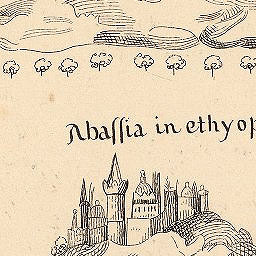 Abassia in ethyop